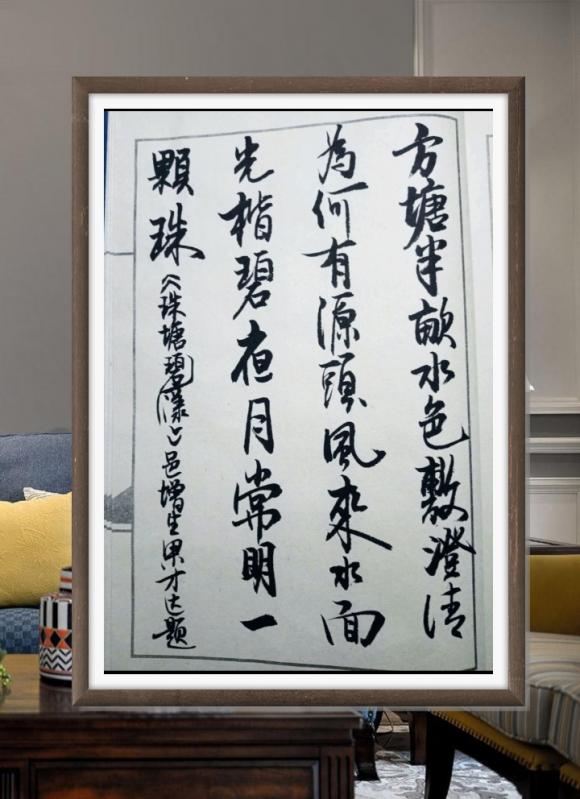 方塘半畝水色敷澄清
為何有源頭風來水面
光楷碧夜月常明一
顆珠《珠塘碧漾》邑增生才达題